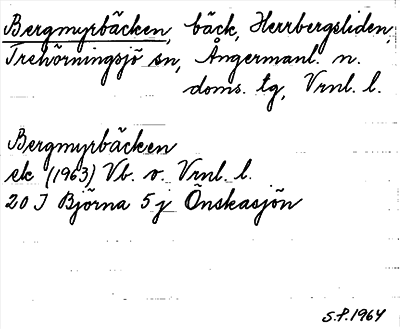 Bergmyrbäcken, bäck, Herrbergsliden,
Trehörningsjö sn, Ångermanl. n.
doms. tg, Vrnl. l.
Bergmyrbäcken
ek (1963) Vb. o. Vrnl. l.
20 I Björna 5 j Önskasjön
S.P. 1964